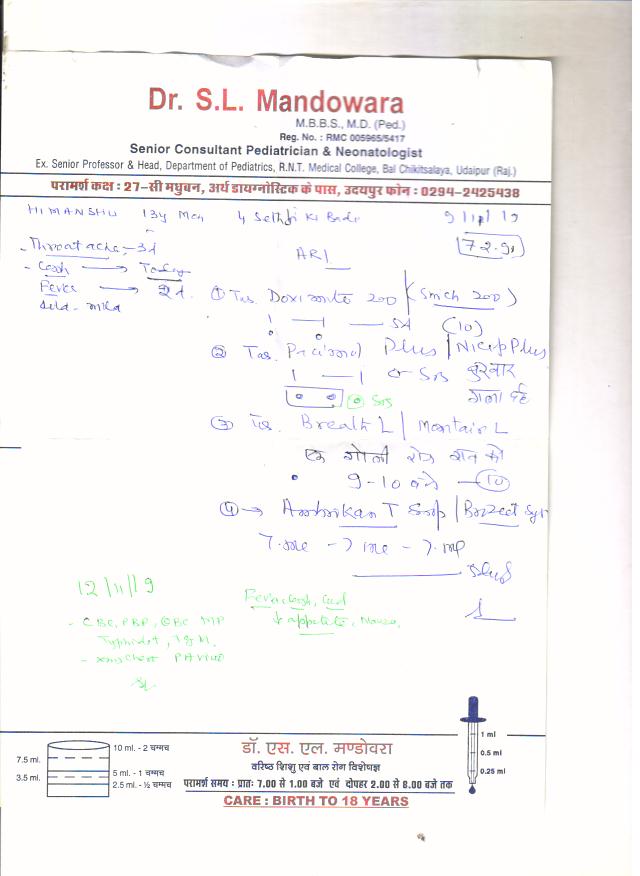 Dr. S.L. Mandowara
M.B.B.S., M.D. (Ped.)
Reg. No. : RMC 005965/5417
Senior Consultant Pediatrician & Neonatologist
Ex. Senior Professor & Head, Department of Pediatrics, R.N.T. Medical College, Bal Chikitsalaya, Udaipur (Raj.)
परामर्श कक्ष : 27-सी मधुबन, अर्थ डायग्नोस्टिक के पास, उदयपुर फोन : 0294-2425438
HIMANSHU 13y Mch 4 Sethji Ki Badi
Throat ache - 3d
ARI
Cough Today
Fever 2d.
① Tab. 200 ( 200)
1 — 1 — 5d (10)
② Tab. Plus / Plus
1 — 1 or SOS बुखार
SOS गला दर्द
③ Tab. Breath L / Montair L
एक गोली रोज रात को
9-10 बजे — (10)
④ T Syp / Syr
12/11/19
Fever, cough, cold
- CBC, PBF, MP
↓ appetite,
Typhidot, IgM.
10 ml. - 2 चम्मच
7.5 ml.
5 ml. - 1 चम्मच
3.5 ml.
2.5 ml. - ½ चम्मच
डॉ. एस. एल. मण्डोवरा
वरिष्ठ शिशु एवं बाल रोग विशेषज्ञ
परामर्श समय : प्रातः 7.00 से 1.00 बजे एवं दोपहर 2.00 से 8.00 बजे तक
CARE : BIRTH TO 18 YEARS
1 ml
0.5 ml
0.25 ml